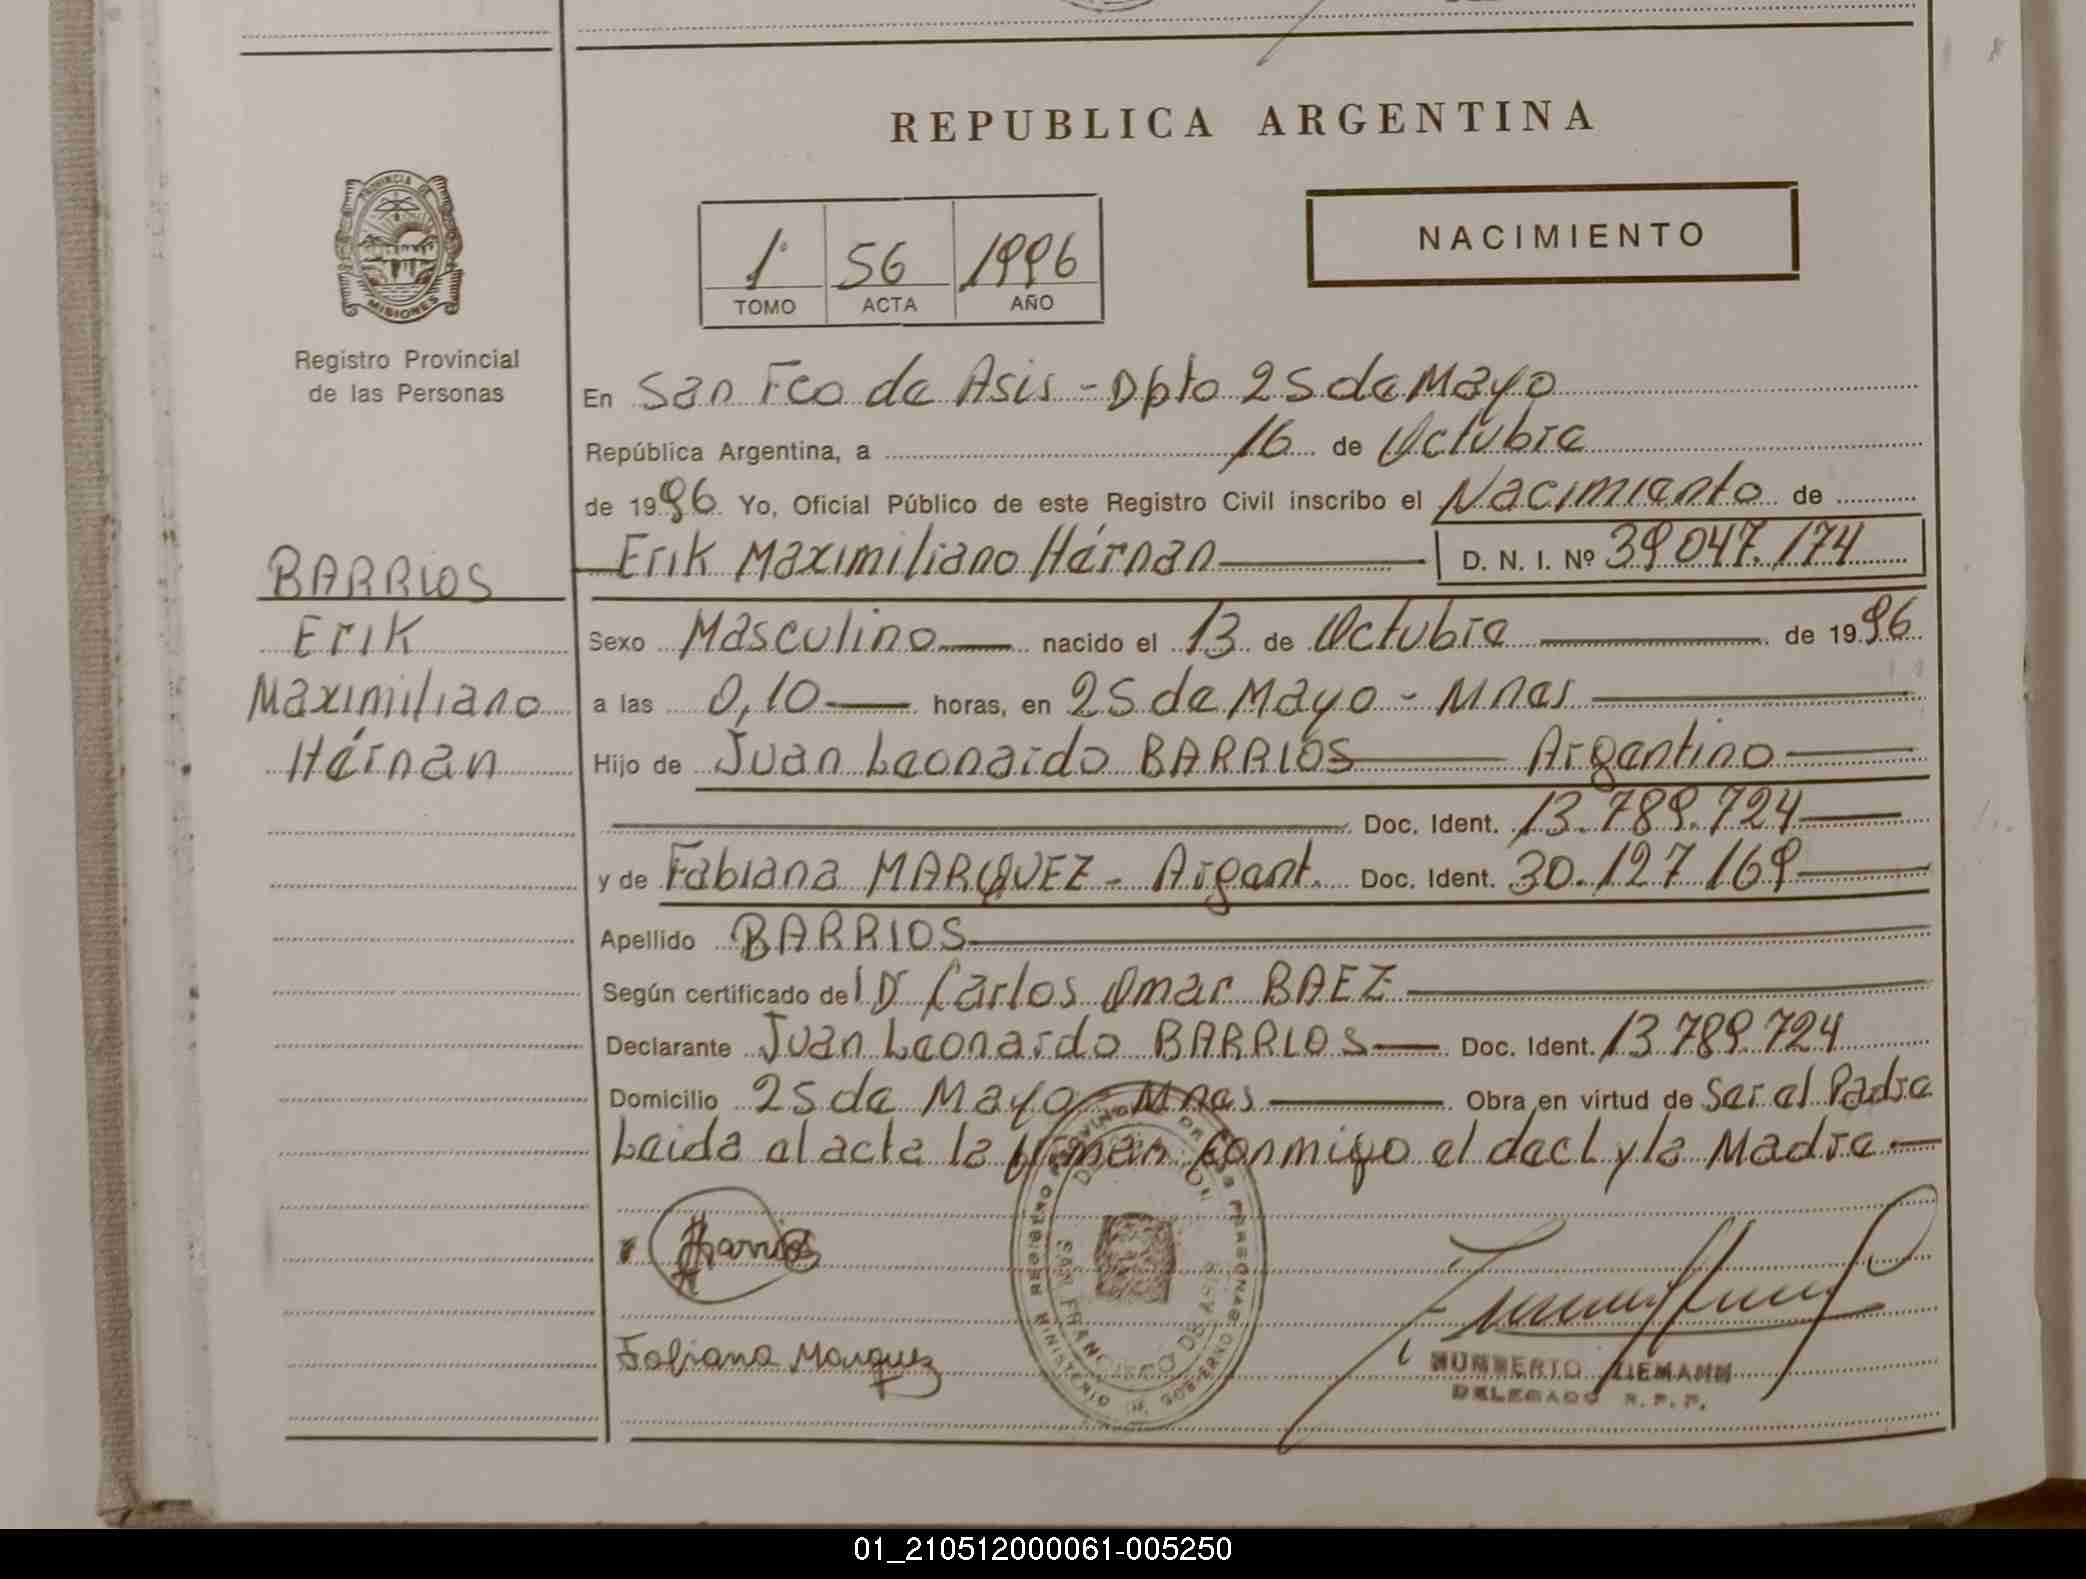 REPUBLICA ARGENTINA
PROVINCIA DE
MISIONES
Registro Provincial
de las Personas
1º 56 1996
TOMO ACTA AÑO
NACIMIENTO
En San Fco de Asis - Dpto 25 de Mayo
República Argentina, a 16 de Octubre
de 1996 Yo, Oficial Público de este Registro Civil inscribo el Nacimiento de
BARRIOS
Erik
Maximiliano
Hérnan
Erik Maximiliano Hérnan D. N. I. Nº 39.047.174
Sexo Masculino nacido el 13 de Octubre de 1996
a las 0,10 horas, en 25 de Mayo - Mnes
Hijo de Juan Leonardo BARRIOS Argentino
Doc. Ident. 13.789.724
y de Fabiana MARQUEZ - Argent. Doc. Ident. 30.127.169
Apellido BARRIOS
Según certificado del Dr Carlos Omar BAEZ
Declarante Juan Leonardo BARRIOS Doc. Ident. 13.789.724
Domicilio 25 de Mayo - Mnes Obra en virtud de Ser el Padre
Leida el acta la firman conmigo el decl y la Madre
Barrios
Fabiana Marquez
SAN FRANCISCO DE ASIS
MINISTERIO DE GOBIERNO
HUMBERTO ZIEMANN
DELEGADO R. P. P.
01_210512000061-005250